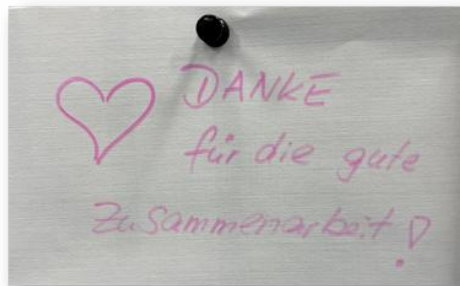 DANKE
für die gute
Zusammenarbeit!